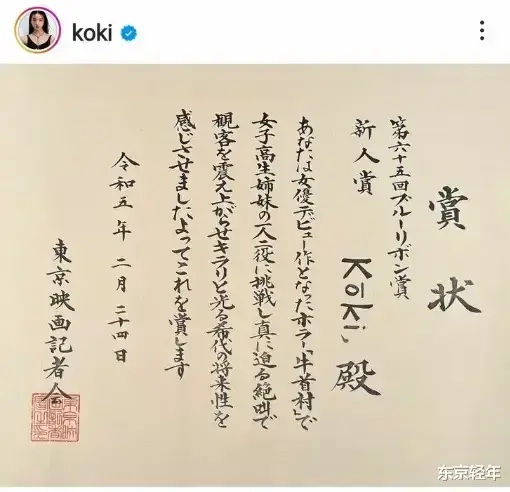 koki
賞状
第六十五回ブルーリボン賞
新人賞
Kōki, 殿
あなたは女優デビュー作となったホラー「牛首村」で
女子高生姉妹の一人二役に挑戦し真に迫る絶叫で
観客を震え上がらせキラリと光る希代の将来性を
感じさせましたよってこれを賞します
令和五年二月二十四日
東京映画記者会
东京轻年